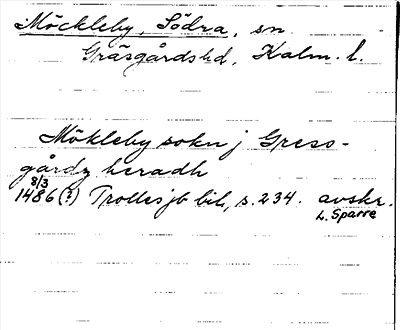 Möckleby, Södra, sn
Gräsgårds hd, Kalm. l.
Mökleby sokn j Gress-
gårdz heradh
8/3
1486 (?) Trolles jb bil., s. 234. avskr.
L. Sparre